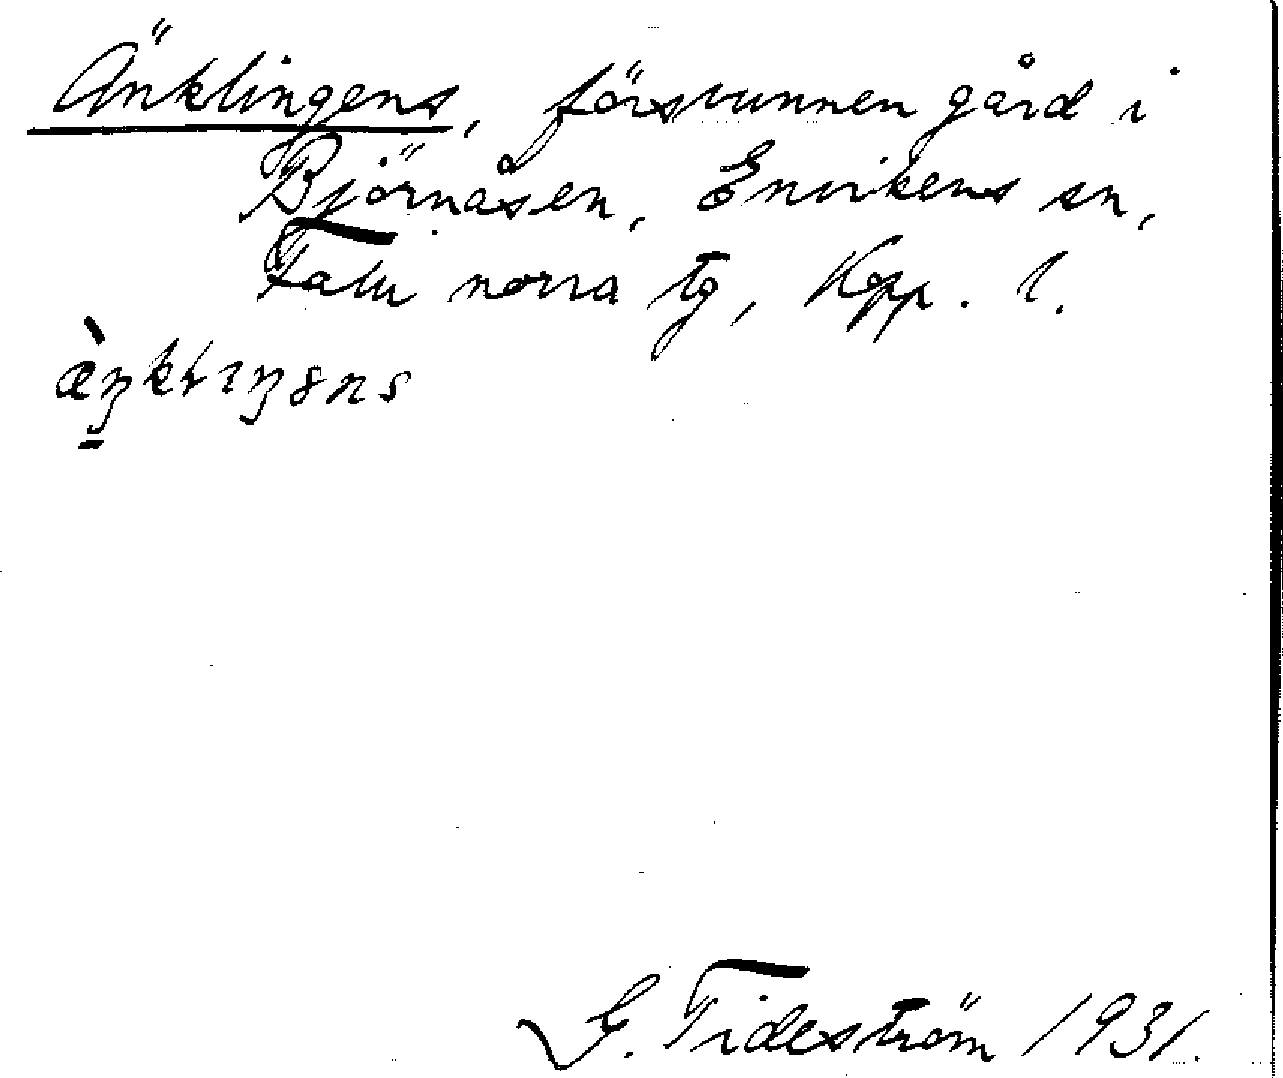 Änklingens, försvunnen gård i
Björnåsen, Envikens sn,
Falu norra tg, Kopp. l.
G. Tideström 1931.